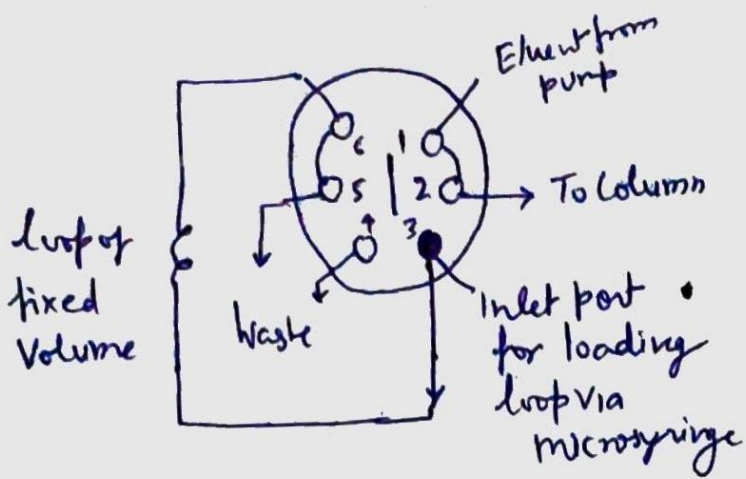 Eluent from
pump
6 1
5 2
To Column
3
4
loop of
fixed
Volume
Waste
Inlet port
for loading
loop via
microsyringe